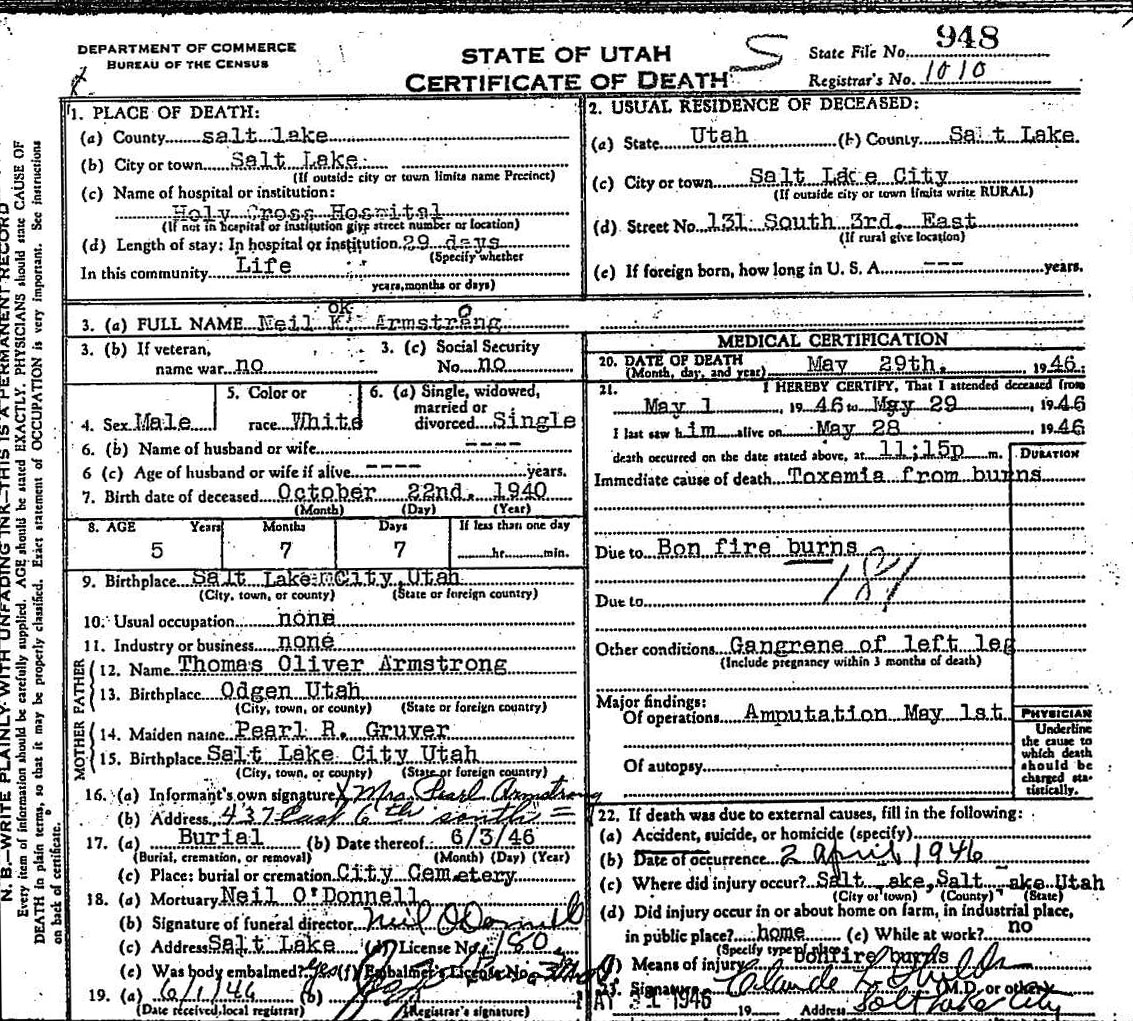 DEPARTMENT OF COMMERCE
BUREAU OF THE CENSUS
STATE OF UTAH
CERTIFICATE OF DEATH
S
State File No. 948
Registrar's No. 1010
N. B.—WRITE PLAINLY WITH UNFADING INK—THIS IS A PERMANENT RECORD
Every item of information should be carefully supplied. AGE should be stated EXACTLY. PHYSICIANS should state CAUSE OF
DEATH in plain terms, so that it may be properly classified. Exact statement of OCCUPATION is very important. See instructions
on back of certificate.
1. PLACE OF DEATH:
(a) County salt lake
(b) City or town Salt Lake
(If outside city or town limits name Precinct)
(c) Name of hospital or institution:
Holy Cross Hospital
(If not in hospital or institution give street number or location)
(d) Length of stay: In hospital or institution. 29 days
(Specify whether
In this community Life
years, months or days)
2. USUAL RESIDENCE OF DECEASED:
(a) State Utah (b) County Salt Lake
(c) City or town Salt Lake City
(If outside city or town limits write RURAL)
(d) Street No. 131 South 3rd. East
(If rural give location)
(e) If foreign born, how long in U. S. A. --- years.
3. (a) FULL NAME Neil K. Armstrang
OK o
3. (b) If veteran,
name war no
3. (c) Social Security
No. no
4. Sex Male
5. Color or
race White
6. (a) Single, widowed,
married or
divorced Single
6. (b) Name of husband or wife ----
6 (c) Age of husband or wife if alive ---- years.
7. Birth date of deceased October 22nd. 1940
(Month) (Day) (Year)
8. AGE Years Months Days If less than one day
5 7 7 hr. min.
9. Birthplace Salt Lake City Utah
(City, town, or county) (State or foreign country)
10. Usual occupation none
11. Industry or business none
FATHER
12. Name Thomas Oliver Armstrong
13. Birthplace Odgen Utah
(City, town, or county) (State or foreign country)
MOTHER
14. Maiden name Pearl R. Gruver
15. Birthplace Salt Lake City Utah
(City, town, or county) (State or foreign country)
16. (a) Informant's own signature X Mrs. Pearl Armstrong
(b) Address 437 East 6th South
17. (a) Burial (b) Date thereof 6/3/46
(Burial, cremation, or removal) (Month) (Day) (Year)
(c) Place: burial or cremation City Cemetery
18. (a) Mortuary Neil O'Donnell
(b) Signature of funeral director Neil O'Donnell
(c) Address Salt Lake License No. 180
(e) Was body embalmed? Yes (f) Embalmer's License No.
19. (a) 6/1/46 (b)
(Date received local registrar) (Registrar's signature)
MEDICAL CERTIFICATION
20. DATE OF DEATH May 29th. 1946.
(Month, day, and year)
21. I HEREBY CERTIFY, That I attended deceased from
May 1, 1946 to May 29, 1946
I last saw him alive on May 28, 1946
death occurred on the date stated above, at 11;15p m.
DURATION
Immediate cause of death Toxemia from burns
Due to Bon fire burns
181
Due to
Other conditions Gangrene of left leg
(Include pregnancy within 3 months of death)
Major findings:
Of operations Amputation May 1st
Of autopsy
PHYSICIAN
Underline
the cause to
which death
should be
charged sta-
tistically.
22. If death was due to external causes, fill in the following:
(a) Accident, suicide, or homicide (specify)
(b) Date of occurrence 2 April 1946
(c) Where did injury occur? Salt ake, Salt ake Utah
(City or town) (County) (State)
(d) Did injury occur in or about home on farm, in industrial place,
in public place? home (e) While at work? no
(Specify type of place)
(f) Means of injury bonfire burns
23. Signature (M.D. or other)
MAY 31 1946
19 Address Salt Lake City